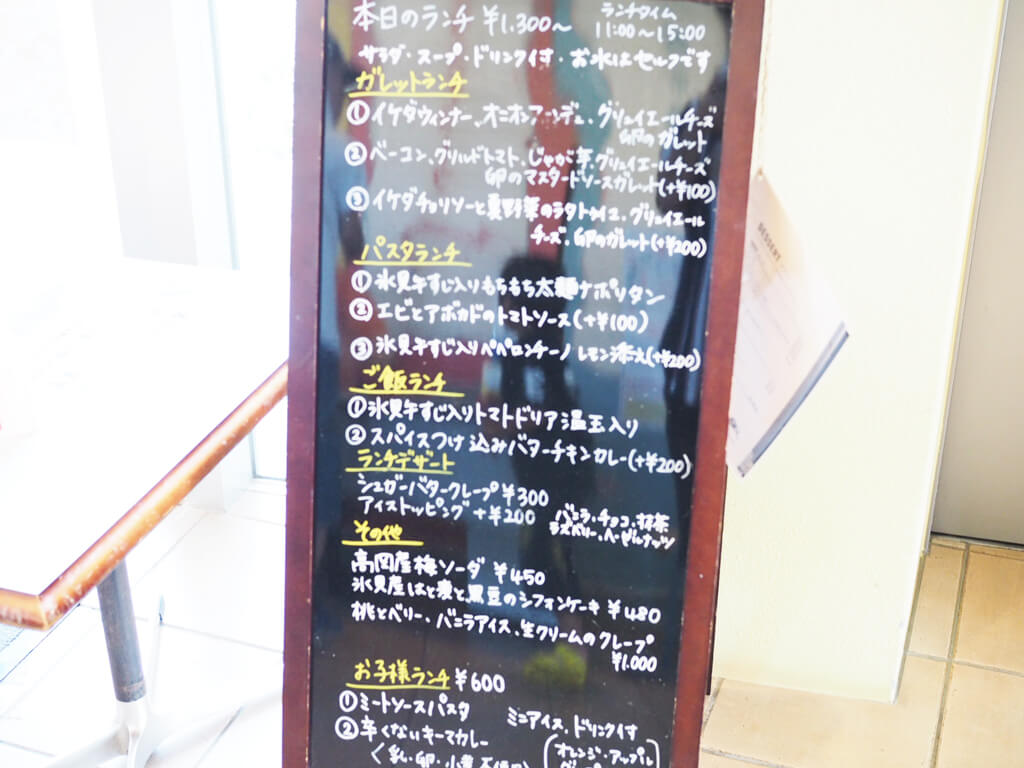 本日のランチ ¥1,300〜 ランチタイム
11:00〜15:00
サラダ・スープ・ドリンク付き・お水はセルフです
ガレットランチ
① イケダウィンナー、オニオンフォンデュ、グリュイエールチーズ
卵のガレット
② ベーコン、グリルドトマト、じゃが芋、グリュイエールチーズ
卵のマスタードソースガレット(+¥100)
③ イケダチョリソーと夏野菜のラタトゥイユ、グリュイエール
チーズ、卵のガレット(+¥200)
パスタランチ
① 氷見牛すじ入りもちもち太麺ナポリタン
② エビとアボカドのトマトソース(+¥100)
③ 氷見牛すじ入りペペロンチーノ レモン添え(+¥200)
ご飯ランチ
① 氷見牛すじ入りトマトドリア温玉入り
② スパイスつけ込みバターチキンカレー(+¥200)
ランチデザート
シュガーバタークレープ ¥300
アイストッピング +¥200 バニラ・チョコ・抹茶
ラズベリー、ヘーゼルナッツ
その他
高岡産梅ソーダ ¥450
氷見産はと麦と黒豆のシフォンケーキ ¥480
桃とベリー、バニラアイス、生クリームのクレープ
¥1.000
お子様ランチ ¥600
① ミートソースパスタ ミニアイス、ドリンク付
② 辛くないキーマカレー (オレンジ・アップル
(乳・卵・小麦不使用)
DESSERT